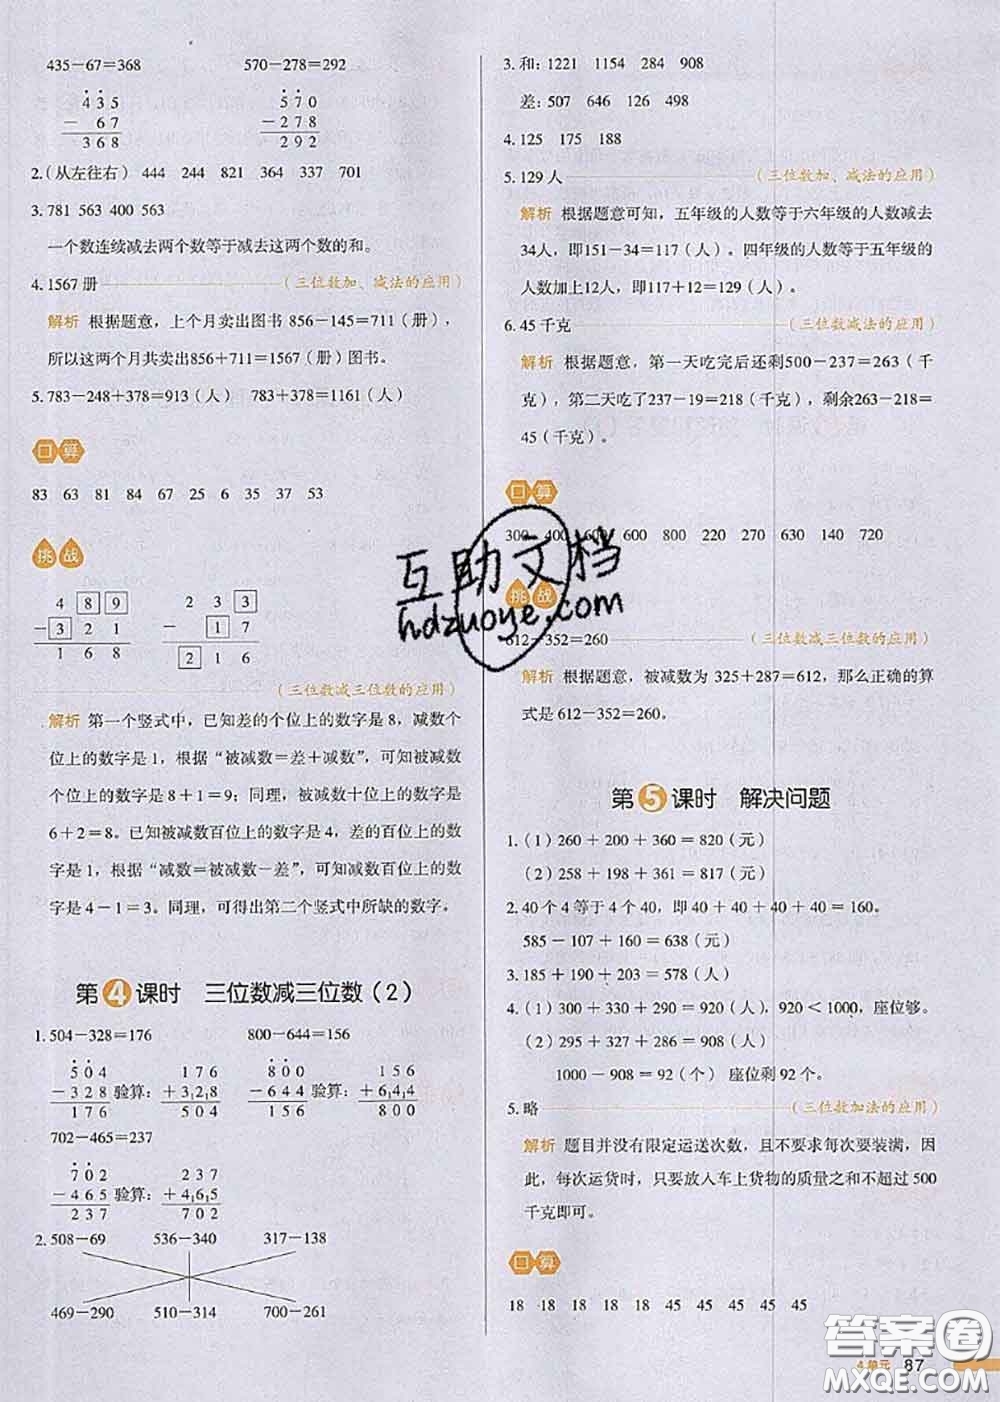 435－67＝368 570－278＝292
435
－ 67
368
570
－278
292
2.(从左往右) 444 244 821 364 337 701
3. 781 563 400 563
一个数连续减去两个数等于减去这两个数的和。
4. 1567 册 (三位数加、减法的应用)
解析 根据题意，上个月卖出图书 856－145＝711（册），
所以这两个月共卖出856＋711＝1567（册）图书。
5. 783－248＋378＝913（人） 783＋378＝1161（人）
口算
83 63 81 84 67 25 6 35 37 53
挑战
4 8 9
－3 2 1
1 6 8
2 3 3
－ 1 7
2 1 6
(三位数减三位数的应用)
解析 第一个竖式中，已知差的个位上的数字是 8，减数个
位上的数字是 1，根据“被减数＝差＋减数”，可知被减数
个位上的数字是 8＋1＝9；同理，被减数十位上的数字是
6＋2＝8。已知被减数百位上的数字是 4，差的百位上的数
字是 1，根据“减数＝被减数－差”，可知减数百位上的数
字是 4－1＝3。同理，可得出第二个竖式中所缺的数字。
第4课时 三位数减三位数（2）
1. 504－328＝176 800－644＝156
504
－328
176
验算：
176
＋328
504
800
－644
156
验算：
156
＋644
800
702－465＝237
702
－465
237
验算：
237
＋465
702
2. 508－69 536－340 317－138
469－290 510－314 700－261
3. 和：1221 1154 284 908
差：507 646 126 498
4. 125 175 188
5. 129 人 (三位数加、减法的应用)
解析 根据题意可知，五年级的人数等于六年级的人数减去
34人，即151－34＝117（人）。四年级的人数等于五年级的
人数加上12人，即117＋12＝129（人）。
6. 45 千克 (三位数减法的应用)
解析 根据题意，第一天吃完后还剩500－237＝263（千
克），第二天吃了237－19＝218（千克），剩余263－218＝
45（千克）。
口算
300 400 600 600 800 220 270 630 140 720
挑战
612－352＝260 (三位数减三位数的应用)
解析 根据题意，被减数为 325＋287＝612，那么正确的算
式是 612－352＝260。
第5课时 解决问题
1.（1）260 ＋ 200 ＋ 360 ＝ 820（元）
（2）258 ＋ 198 ＋ 361 ＝ 817（元）
2. 40 个 4 等于 4 个 40，即 40 ＋ 40 ＋ 40 ＋ 40 ＝ 160。
585 － 107 ＋ 160 ＝ 638（元）
3. 185 ＋ 190 ＋ 203 ＝ 578（人）
4.（1）300 ＋ 330 ＋ 290 ＝ 920（人），920 ＜ 1000，座位够。
（2）295 ＋ 327 ＋ 286 ＝ 908（人）
1000 － 908 ＝ 92（个） 座位剩 92 个。
5. 略 (三位数加法的应用)
解析 题目并没有限定运送次数，且不要求每次要装满，因
此，每次运货时，只要放入车上货物的质量之和不超过 500
千克即可。
口算
18 18 18 18 18 45 45 45 45 45
4单元 87
互助文档
hdzuoye.com
答案圈
MXQE.COM